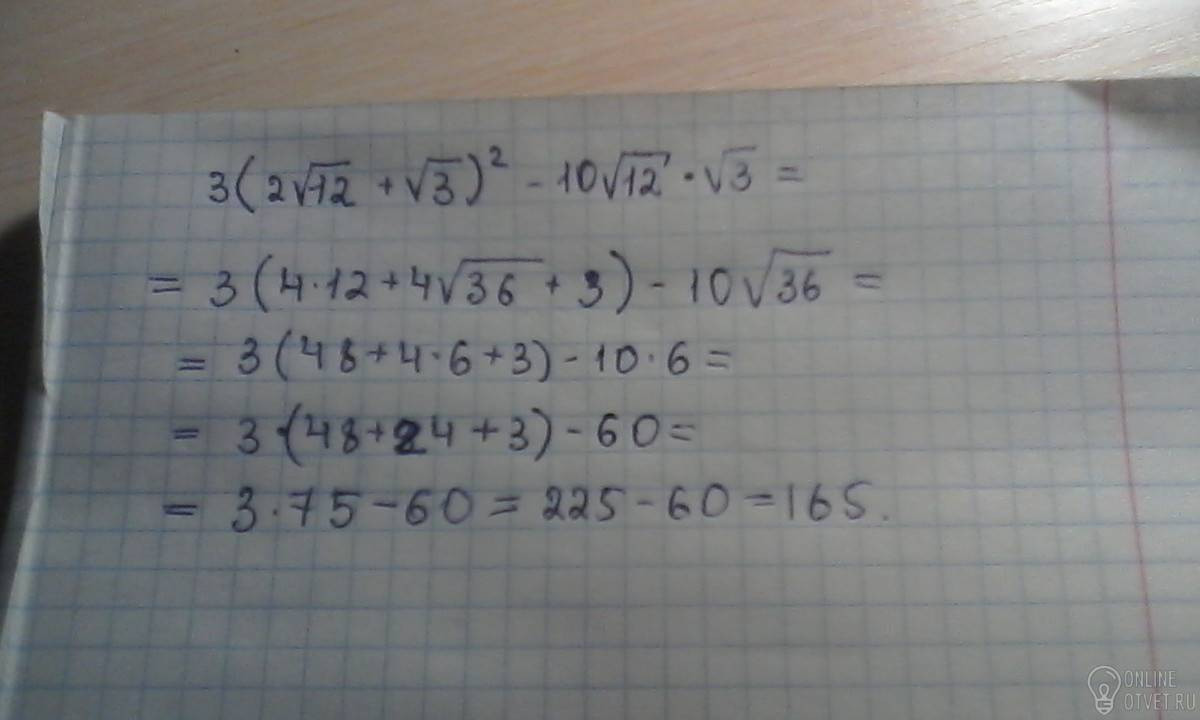 3(2√12 + √3)² - 10√12 · √3 =
= 3(4·12+4√36 + 3) - 10√36 =
= 3(48+4·6+3)-10·6=
= 3·(48+24+3)-60=
= 3·75-60=225-60=165.
ONLINE
OTVET.RU